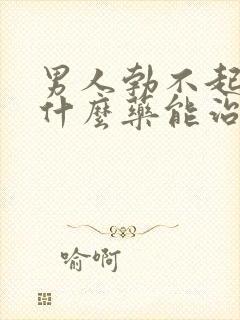 男人勃不起
什麼藥能治
喻啊